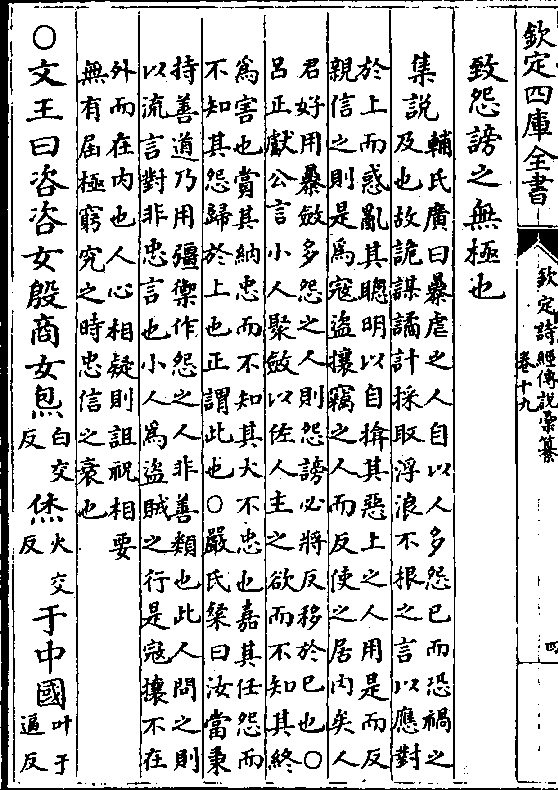 欽定四庫全書
欽定詩經傳說彙纂
卷十九
四
致怨謗之無極也
集說
輔氏廣曰暴虐之人自以人多怨已而恐禍之
及也故詭謀譎計採取浮浪不根之言以應對
於上而惑亂其聰明以自揜其惡上之人用是而反
親信之則是為寇盜攘竊之人而反使之居内矣人
君好用暴斂多怨之人則怨謗必將反移於已也○
呂正獻公言小人聚斂以佐人主之欲而不知其終
為害也賞其納忠而不知其大不忠也嘉其任怨而
不知其怨歸於上也正謂此也○嚴氏粲曰汝當秉
持善道乃用彊禦作怨之人非善類也此人問之則
以流言對非忠言也小人為盜賊之行是寇攘不在
外而在内也人心相疑則詛祝相要
無有屆極窮究之時忠信之衰也
○文王曰咨咨女殷商女炰白交反烋火交反于中國叶于逼反